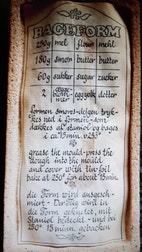 BAGEFORM
250g mel flour mehl
180g smør butter butter
60g sukker sugar zucker
2 æggeblommer egg yolk dotter
formen smøres-dejgen tryk-
kes ned i formen-som
dækkes af staniol og bages
i ca 15 min. v. 250°
grease the mould-press the
dough into the mould
and cover with tin-foil
bake at 250° for about 15 min.
die Form wird ausgesch-
miert - Der Teig wird in
die Form geknetet, mit
Staniol bedeckt - und bei
250° 15 minut. gebacken